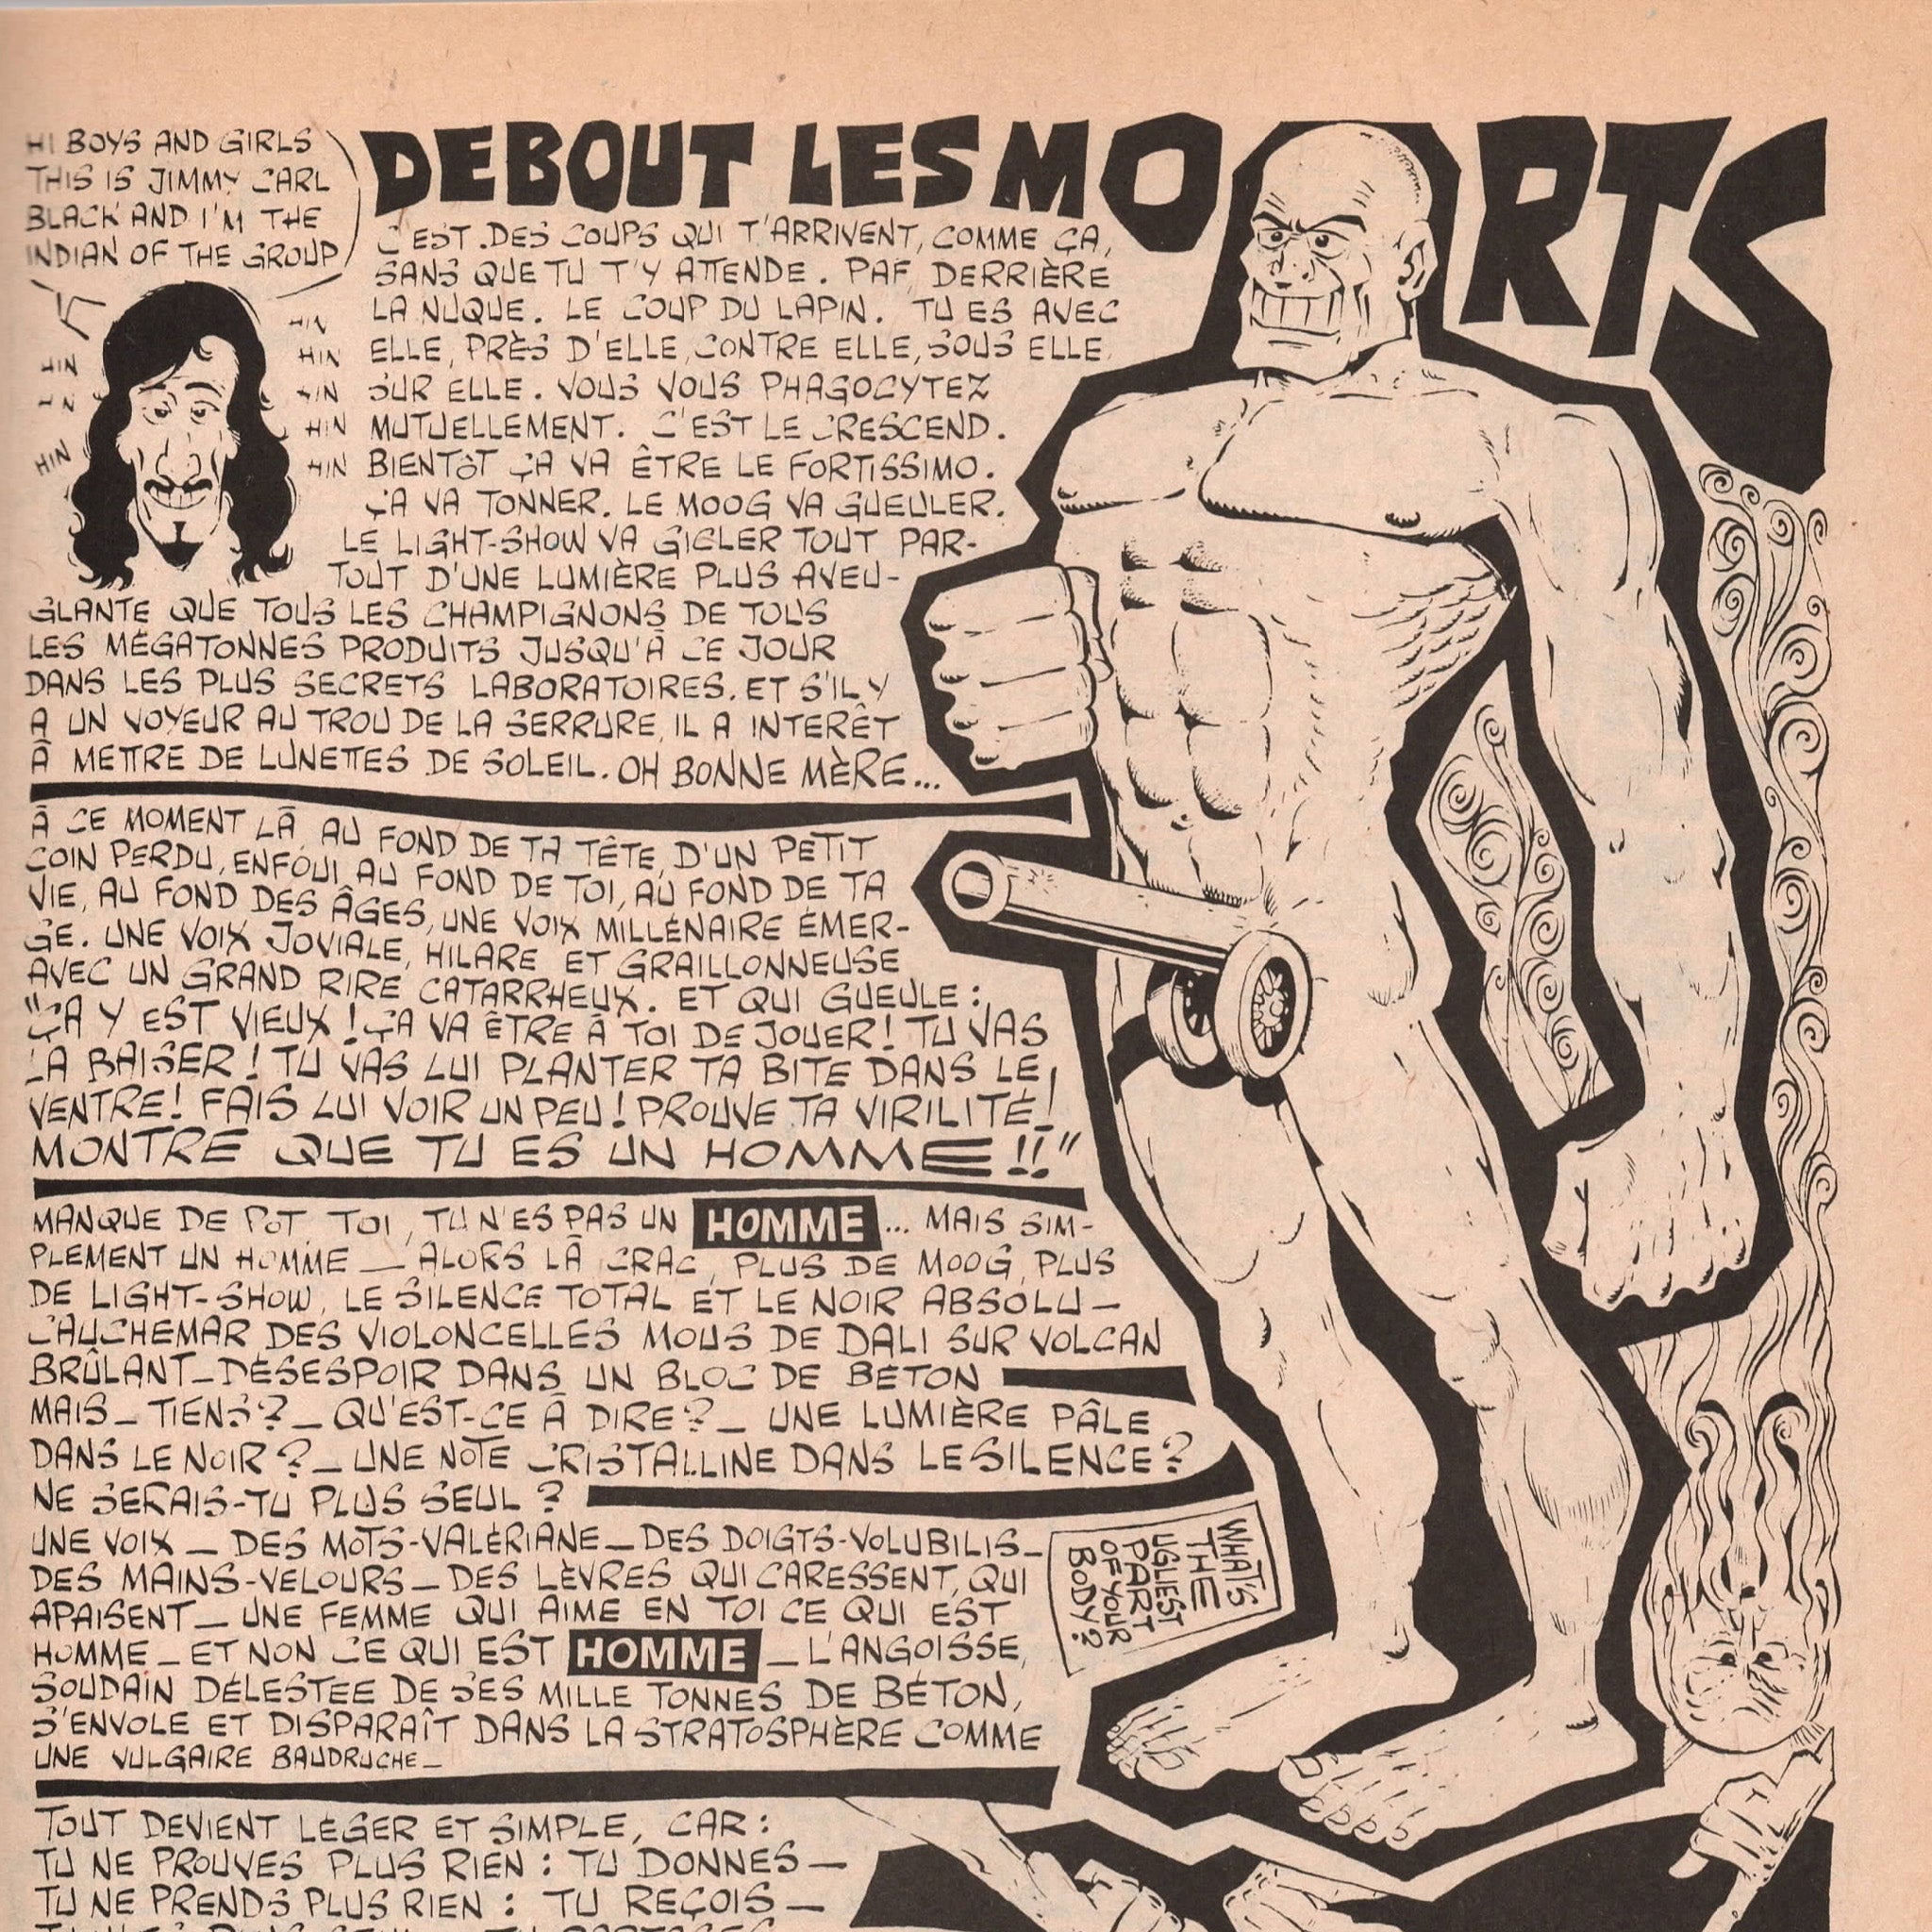 HI BOYS AND GIRLS
THIS IS JIMMY CARL
BLACK AND I'M THE
INDIAN OF THE GROUP
HIN
HIN
HIN
HIN
HIN
HIN
HIN
HIN
DEBOUT LES MORTS
C'EST DES COUPS QUI T'ARRIVENT, COMME ÇA,
SANS QUE TU T'Y ATTENDE. PAF, DERRIÈRE
LA NUQUE. LE COUP DU LAPIN. TU ES AVEC
ELLE, PRÈS D'ELLE, CONTRE ELLE, SOUS ELLE,
SUR ELLE. VOUS VOUS PHAGOCYTEZ
MUTUELLEMENT. C'EST LE CRESCEND.
BIENTÔT ÇA VA ÊTRE LE FORTISSIMO.
ÇA VA TONNER. LE MOOG VA GUEULER.
LE LIGHT-SHOW VA GICLER TOUT PAR-
TOUT D'UNE LUMIÈRE PLUS AVEU-
GLANTE QUE TOUS LES CHAMPIGNONS DE TOUS
LES MÉGATONNES PRODUITS JUSQU'À CE JOUR
DANS LES PLUS SECRETS LABORATOIRES. ET S'IL Y
A UN VOYEUR AU TROU DE LA SERRURE, IL A INTERÊT
À METTRE DE LUNETTES DE SOLEIL. OH BONNE MÈRE...
À CE MOMENT LÀ, AU FOND DE TA TÊTE, D'UN PETIT
COIN PERDU, ENFOUI, AU FOND DE TOI, AU FOND DE TA
VIE, AU FOND DES ÂGES, UNE VOIX MILLÉNAIRE ÉMER-
GE. UNE VOIX JOVIALE, HILARE ET GRAILLONNEUSE
AVEC UN GRAND RIRE CATARRHEUX. ET QUI GUEULE :
"ÇA Y EST VIEUX ! ÇA VA ÊTRE À TOI DE JOUER ! TU VAS
LA BAISER ! TU VAS LUI PLANTER TA BITE DANS LE
VENTRE ! FAIS LUI VOIR UN PEU ! PROUVE TA VIRILITÉ !
MONTRE QUE TU ES UN HOMME !!"
MANQUE DE POT TOI, TU N'ES PAS UN HOMME... MAIS SIM-
PLEMENT UN HOMME — ALORS LÀ CRAC, PLUS DE MOOG, PLUS
DE LIGHT-SHOW, LE SILENCE TOTAL ET LE NOIR ABSOLU —
CAUCHEMAR DES VIOLONCELLES MOUS DE DALI SUR VOLCAN
BRÛLANT — DÉSESPOIR DANS UN BLOC DE BÉTON
MAIS — TIENS ? — QU'EST-CE À DIRE ? — UNE LUMIÈRE PÂLE
DANS LE NOIR ? — UNE NOTE CRISTALLINE DANS LE SILENCE ?
NE SERAIS-TU PLUS SEUL ?
UNE VOIX — DES MOTS-VALÉRIANE — DES DOIGTS-VOLUBILIS —
DES MAINS-VELOURS — DES LÈVRES QUI CARESSENT, QUI
APAISENT — UNE FEMME QUI AIME EN TOI CE QUI EST
HOMME — ET NON CE QUI EST HOMME — L'ANGOISSE,
SOUDAIN DÉLESTÉE DE SES MILLE TONNES DE BÉTON,
S'ENVOLE ET DISPARAÎT DANS LA STRATOSPHÈRE COMME
UNE VULGAIRE BAUDRUCHE —
WHAT'S
THE
UGLIEST
PART
OF YOUR
BODY?
TOUT DEVIENT LÉGER ET SIMPLE, CAR :
TU NE PROUVES PLUS RIEN : TU DONNES —
TU NE PRENDS PLUS RIEN : TU REÇOIS —